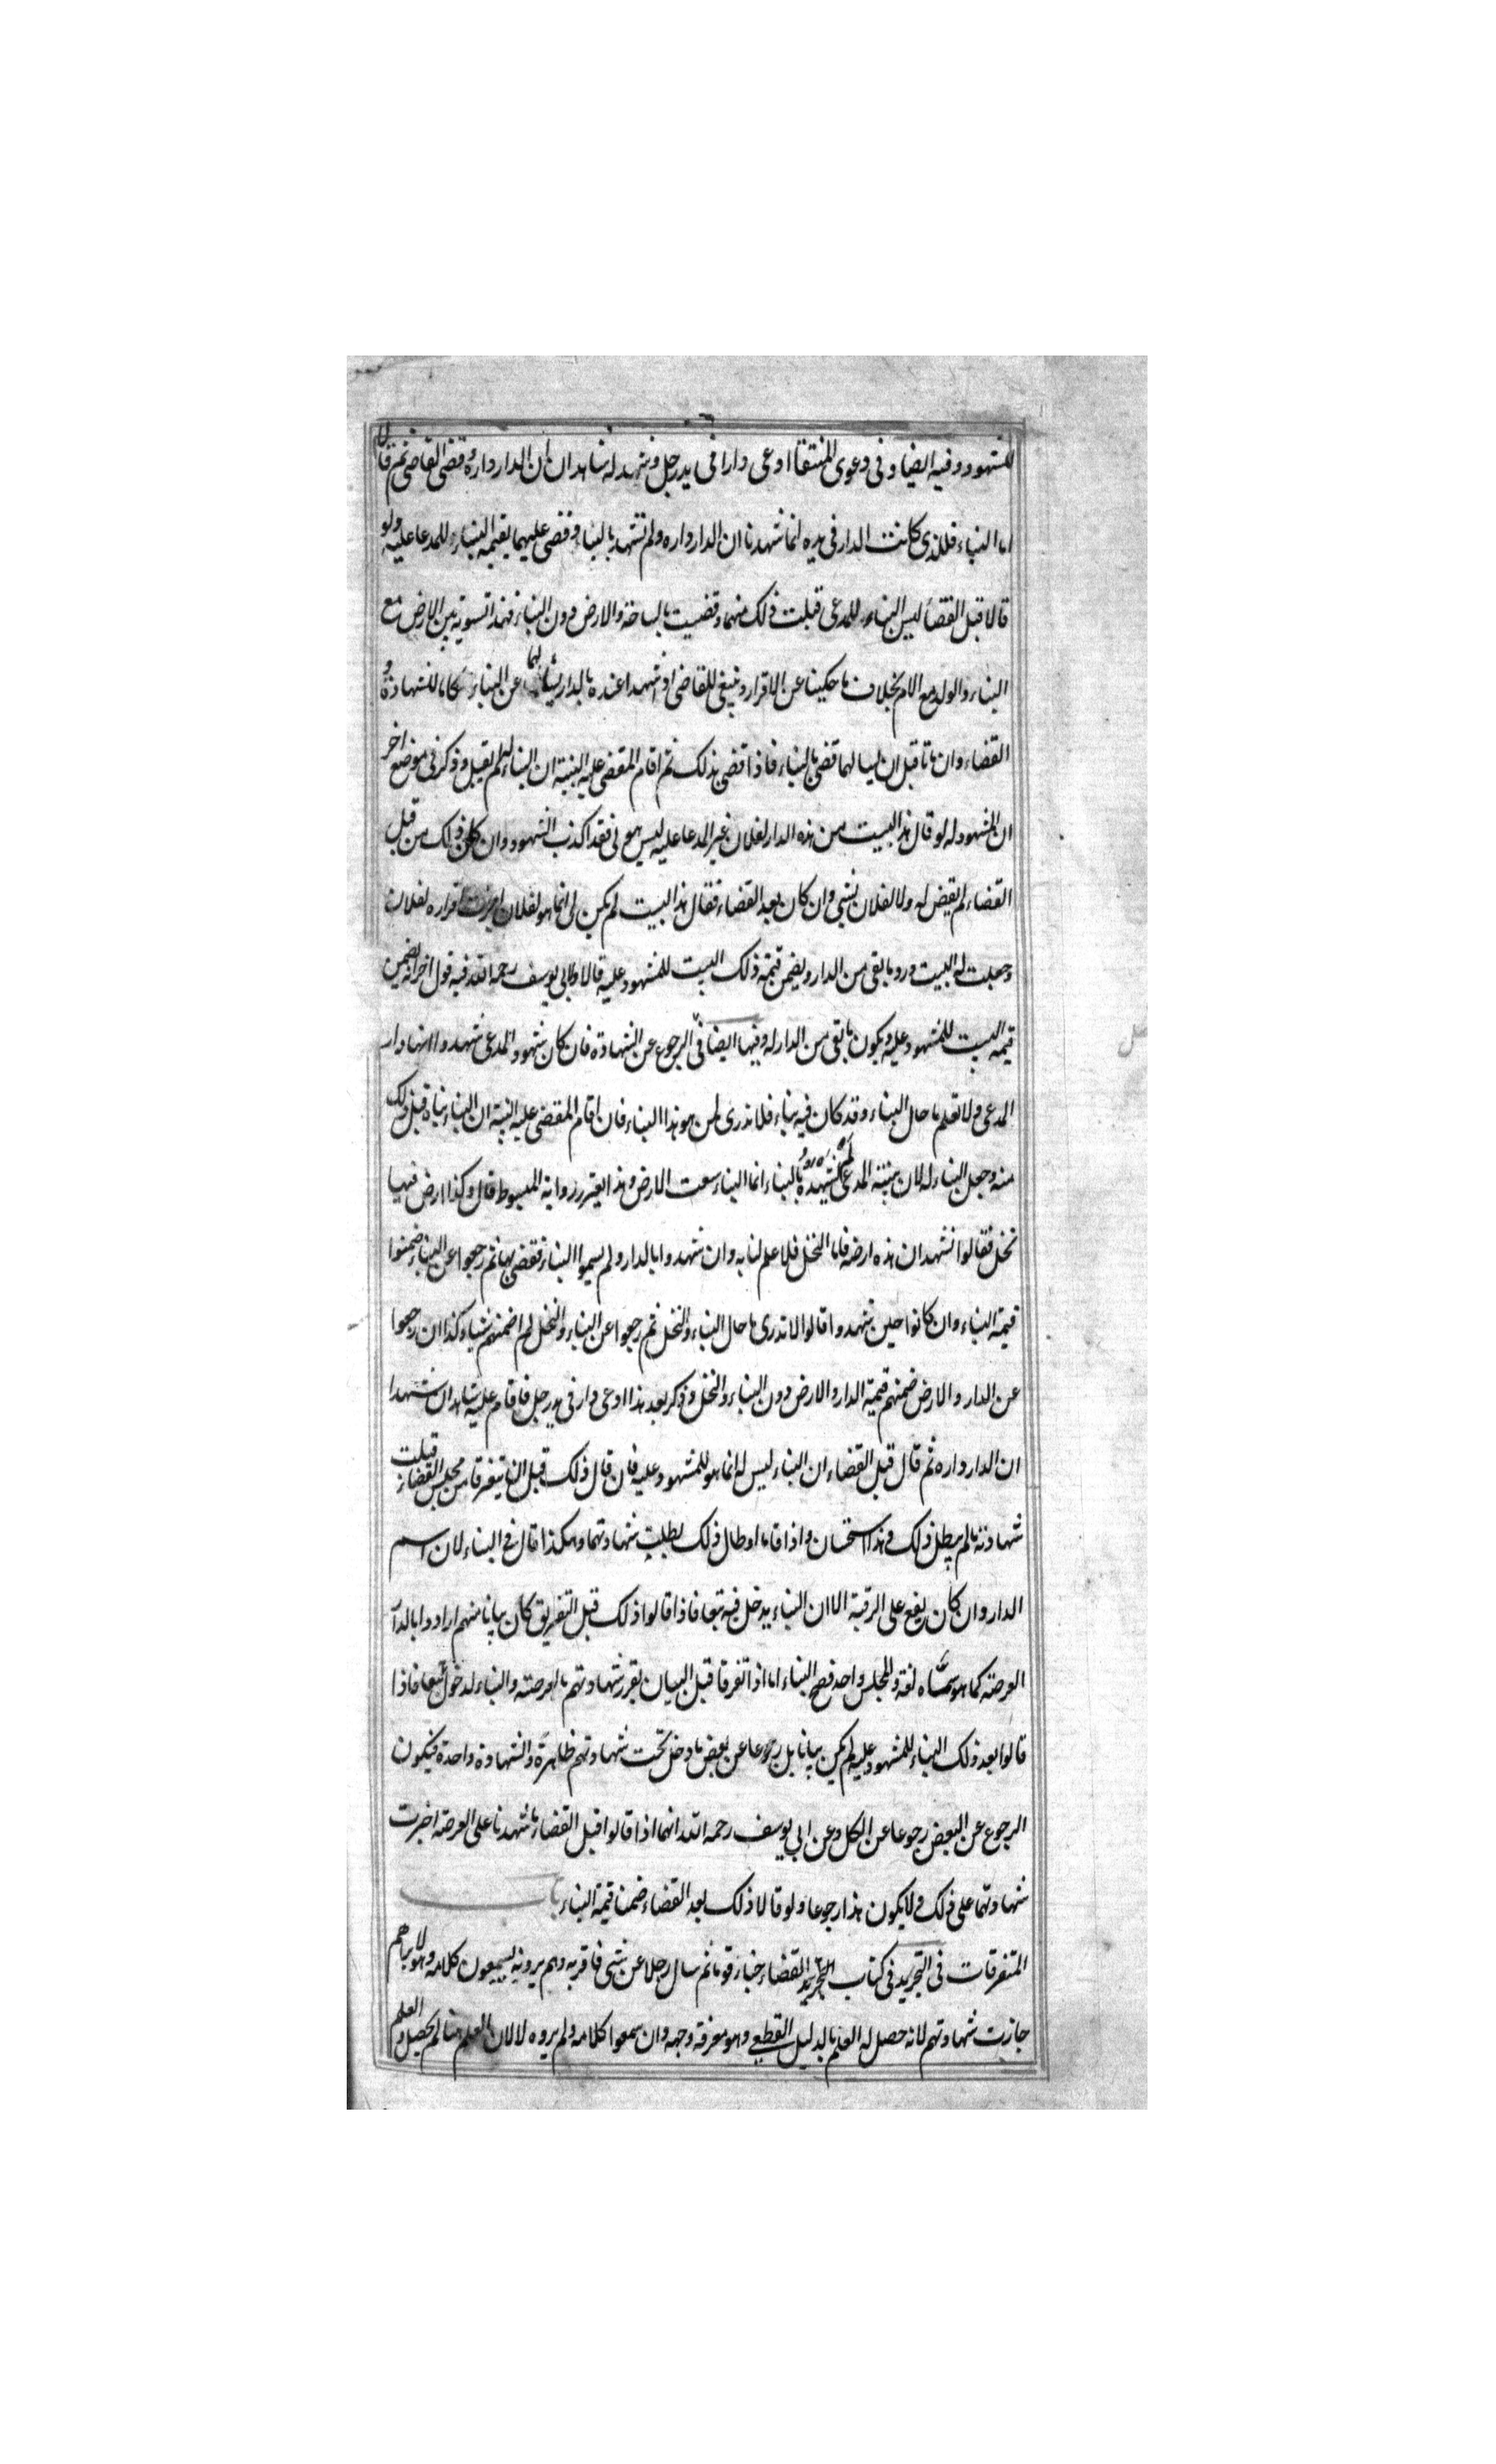 للشهود وفيه ايضا وفى دعوى المنتقا ادعى دارا فى يد رجل وشهد له شاهدان ان الدار داره وقضى القاضى ثم قالا
اما البناء فللذى كانت الدار فى يده انما شهدنا ان الدار داره ولم نشهد بالبناء وقضى عليهما بقيمة البناء للمدعا عليه ولو
قالا قبل القضا ليس البناء للمدعى قبلت ذلك منهما وقضيت بالساحة والارض دون البناء فهذا تسوية بين الارض مع
البناء والولد مع الام بخلاف ما حكينا عن الاقرار وينبغى للقاضى اذ شهدا عنده بالدار يسألهما عن البناء كانا للشهادة و
القضاء وان ماتا قبل ان يسالهما قضى بالبناء فاذا قضى بذلك ثم اقام المقضى عليه البينة ان البناء له لم يقبل وذكر فى موضع اخر
ان المشهود له لو قال هذا البيت من هذه الدار لفلان غير المدعا عليه ليس هو لى فقد اكذب الشهود وان كان ذلك من قبل
القضاء لم يقض له ولا لفلان بشى وان كان بعد القضاء فقال هذا البيت لم يكن لى انما هو لفلان اجزت اقراره لفلان
وجعلت له البيت ورد ما بقى من الدار ويضمن قيمة ذلك البيت للمشهود عليه قالا ولابى يوسف رحمه الله فيه قول اخر انه يضمن
قيمة البيت للمشهود عليه ويكون ما بقى من الدار له وفيها ايضا فى الرجوع عن الشهادة فان كان شهود المدعى شهدوا انها دار
المدعى ولا نعلم ما حال البناء وقد كان فيه بناء فلا ندرى لمن هو هذا البناء فان اقام المقضى عليه البينة ان البناء بناه قبل ذلك
منه وجعل البناء له لان بينة المدعى لم يشهدوا بالبناء انما البناء سعت الارض وهذا رواية المبسوط قال وكذا ارض فيها
نخل فقالوا نشهد ان هذه ارضه فاما النخل فلا علم لنا به وان شهدوا بالدار ولم يسموا البناء فقضى بها ثم رجعوا عن البناء ضمنوا
قيمة البناء وان كانوا حين شهدوا قالوا لا ندرى ما حال البناء والنخل ثم رجعوا عن البناء والنخل لم اضمنهم شيا وكذا ان رجعوا
عن الدار والارض ضمنهم قيمة الدار والارض دون البناء والنخل وذكر بعد هذا ادعى دار فى يد رجل فاقام عليه شاهدان شهدا
ان الدار داره ثم قال قبل القضاء ان البناء ليس له انما هو للمشهود عليه فان قال ذلك قبل ان يتفرقا من مجلس القضاء قبلت
شهادته ما لم يطل ذلك وهذا استحسان واذا قاما او طال ذلك بطلت شهادتهما وهكذا قال فى البناء لان اسم
الدار وان كان يقع على الرقبة الا ان البناء يدخل فيه تبعا فاذا قالوا ذلك قبل التفريق كان بيانا منهم ارادوا بالدار
العرصة كما هو مسماه لغة والمجلس واحد فصح البناء اما اذا تفرقا قبل البيان يقرر شهادتهم بالعرصة والبناء لدخول تبعا فاذا
قالوا بعد ذلك البناء للمشهود عليه لم يكن بيانا بل رجوعا عن بعض ما دخل تحت شهادتهم ظاهرة والشهادة واحدة فيكون
الرجوع عن البعض رجوعا عن الكل وعن ابى يوسف رحمه الله انهما اذا قالوا قبل القضاء ما شهدنا على العرصة اجزت
شهادتهما على ذلك ولا يكون هذا رجوعا ولو قالا ذلك بعد القضاء ضمنا قيمة البناء باب
المتفرقات فى التجريد فى كتاب القضاء خبأ قوما ثم سال رجلا عن شى فاقر به وهم يرونه يسمعون كلامه وهو لا يراهم
جازت شهادتهم لانه حصل له العلم بالدليل القطعى وهو معرفة وجهه وان سمعوا كلامه ولم يروه لا لان العلم هنا لم يحصل والعلم